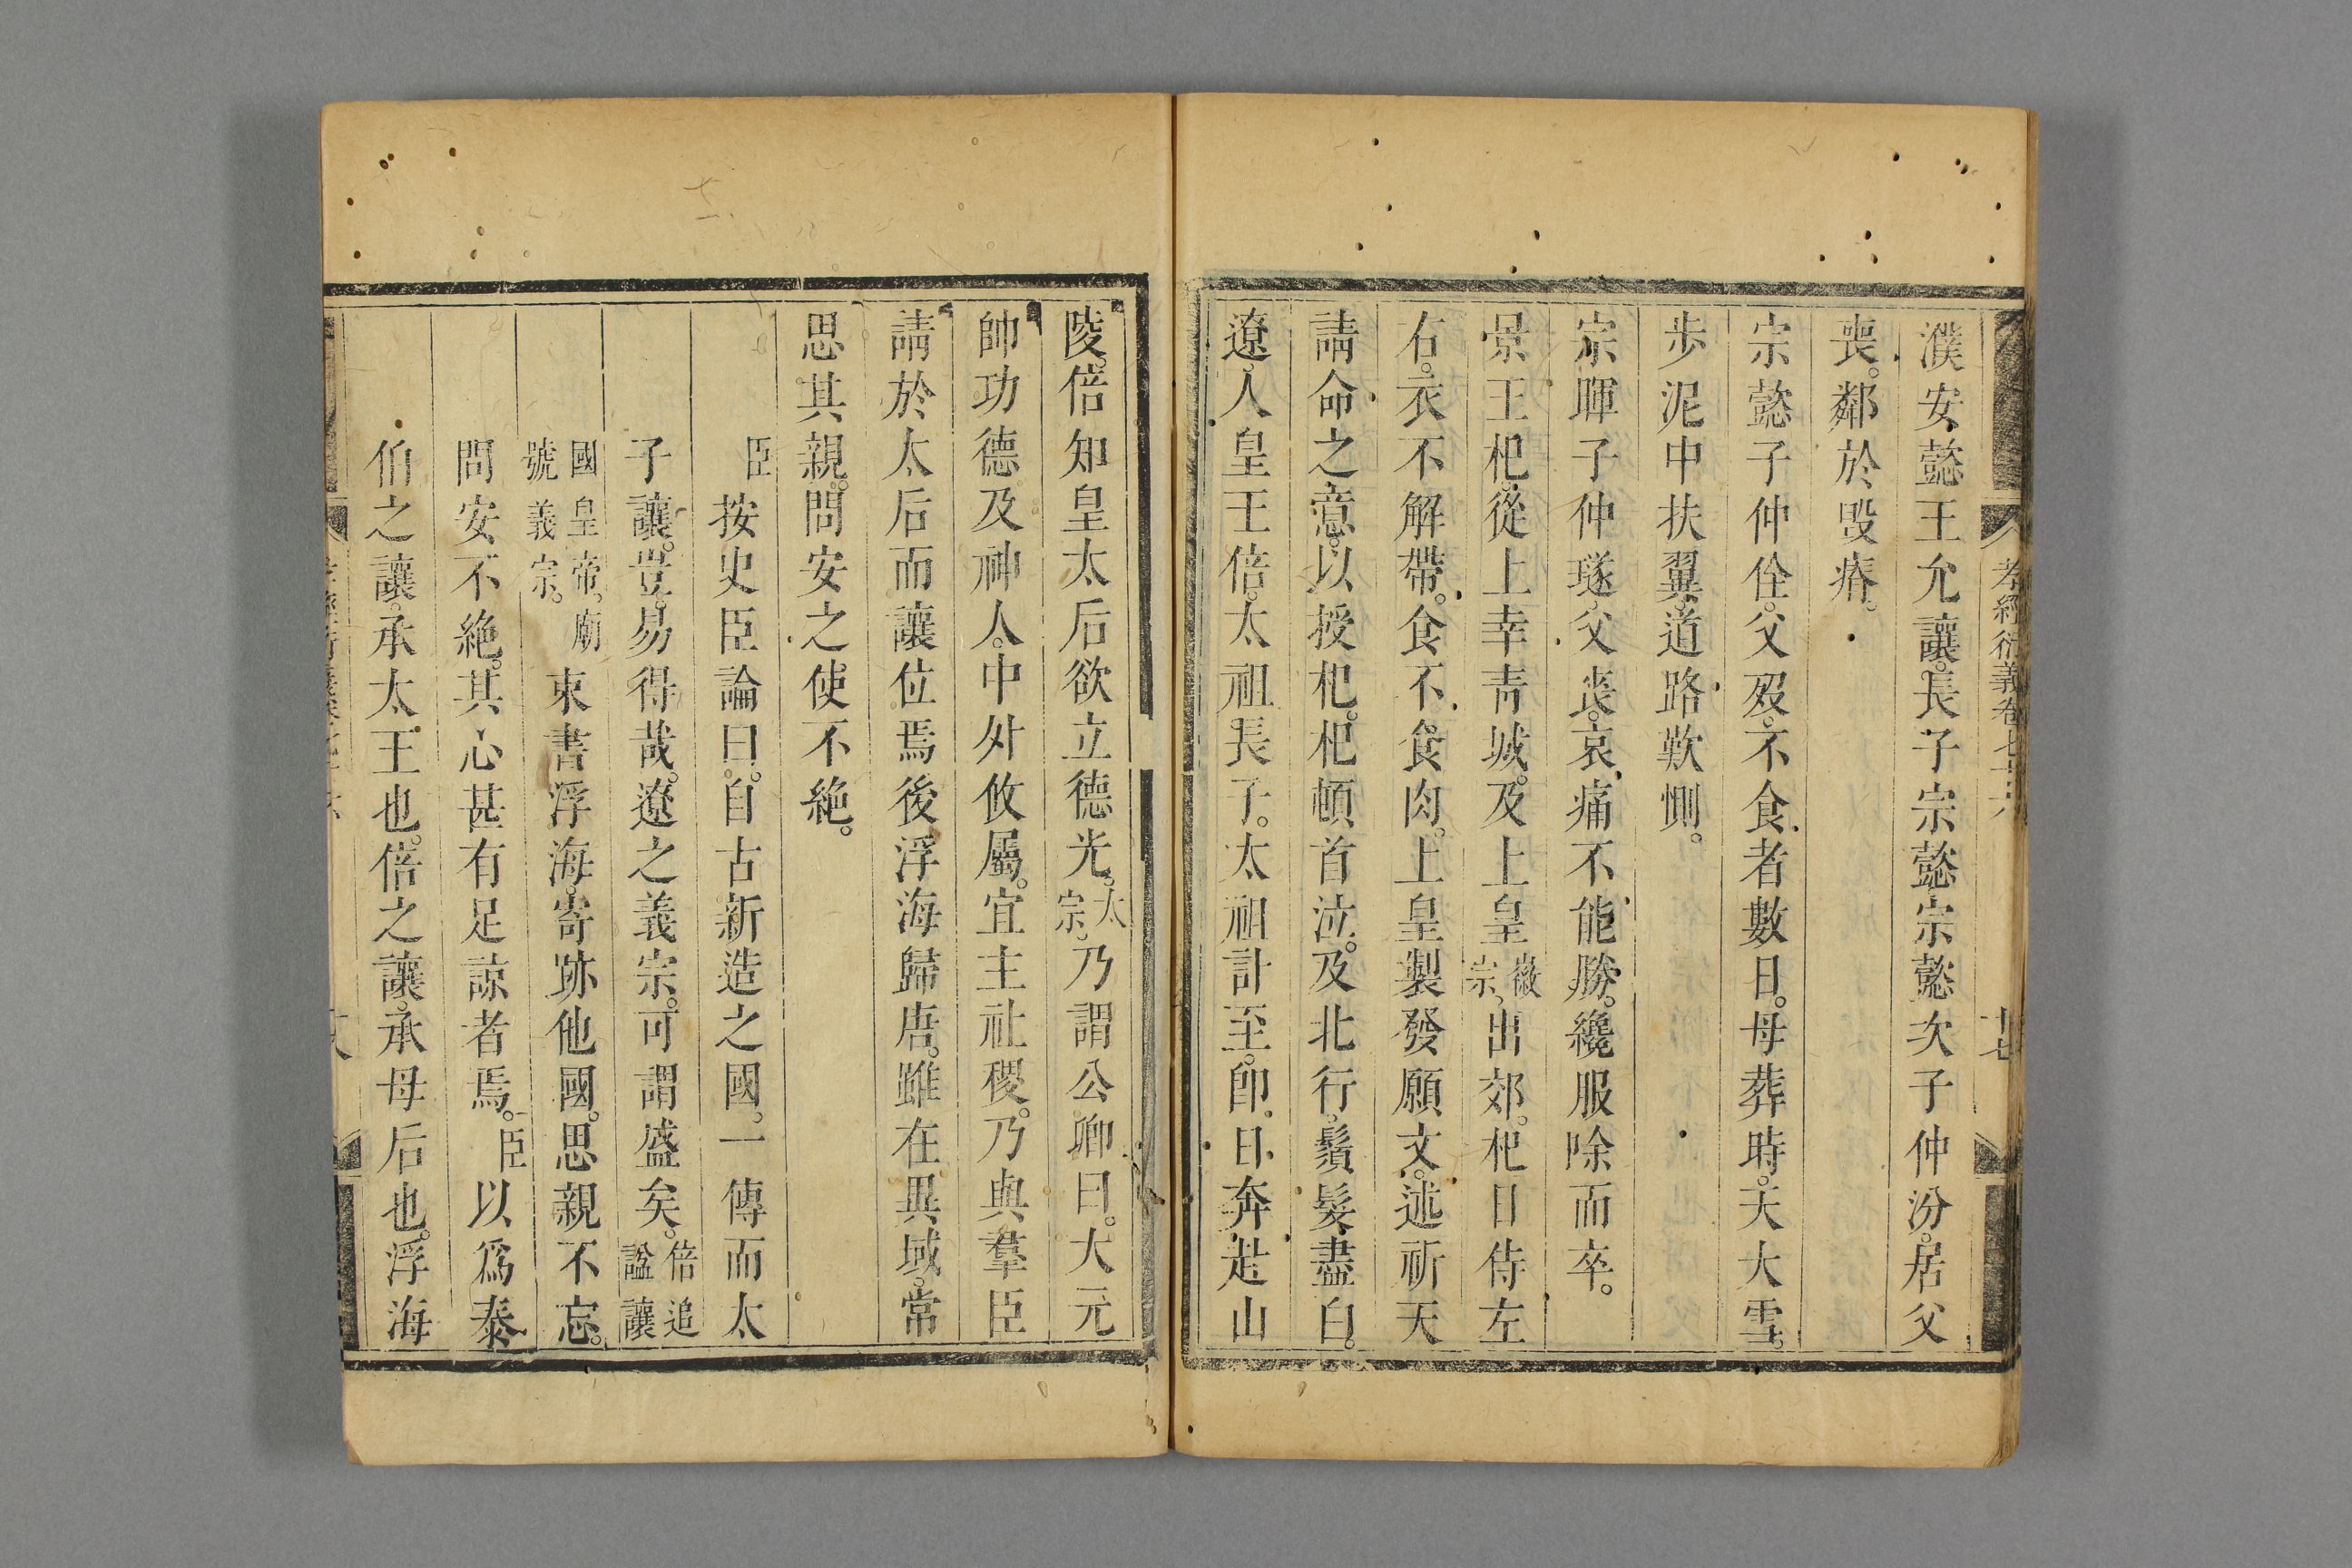 孝經衍義卷七十六
十七
濮安懿王允讓。長子宗懿宗懿次子仲汾。居父
喪。鄰於毁瘠。
宗懿子仲佺。父歿。不食者數日。母葬時。天大雪。
步泥中扶翼。道路歎惻。
宗暉子仲璲。父喪。哀痛不能勝。纔服除而卒。
景王杞。從上幸靑城。及上皇徽宗。出郊。杞日侍左
右。衣不解帶。食不食肉。上皇製發願文。述祈天
請命之意。以授杞。杞頓首泣。及北行。鬚髮盡白。
遼。人皇王倍。太祖長子。太祖計至。卽日奔赴山
陵。倍知皇太后欲立德光。太宗。乃謂公卿曰。大元
帥功德及神人。中外攸屬。宜主社稷。乃與羣臣
請於太后而讓位焉後浮海歸唐。雖在異域。常
思其親。問安之使不絶。
臣按史臣論曰。自古新造之國。一傳而太
子讓。豈易得哉。遼之義宗。可謂盛矣。倍追諡讓
國皇帝。廟號義宗。東書浮海。寄跡他國。思親不忘。
問安不絶。其心甚有足諒者焉。臣以爲泰
伯之讓。承太王也。倍之讓。承母后也。浮海